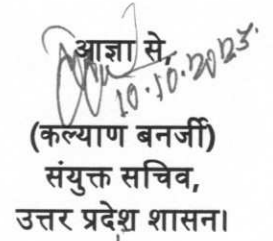 आज्ञा से,
10.10.2023.
(कल्याण बनर्जी)
संयुक्त सचिव,
उत्तर प्रदेश शासन।